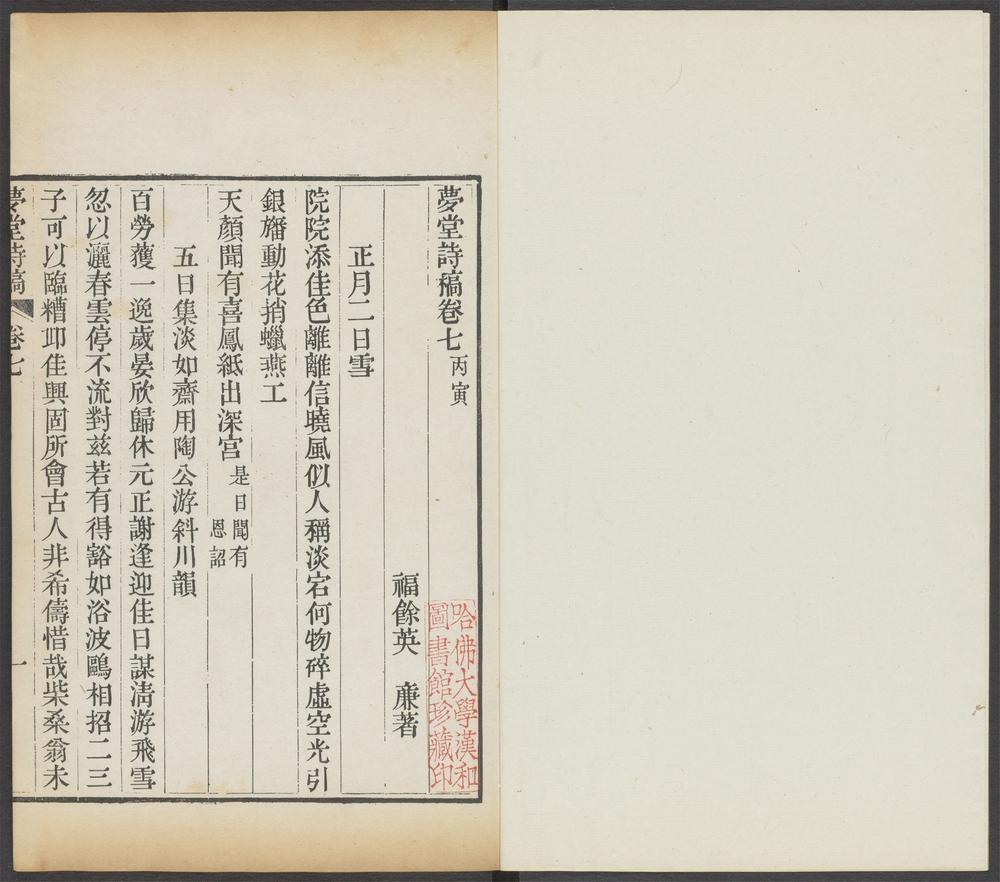 夢堂詩稿卷七丙寅
哈佛大學漢和
圖書館珍藏印
福餘英　廉著
正月二日雪
院院添佳色離離信曉風似人稱淡宕何物碎虛空光引
銀旛動花捎蠟燕工
天顏聞有喜鳳紙出深宮是日聞有
恩詔
五日集淡如齋用陶公游斜川韻
百勞獲一逸歲晏欣歸休元正謝逢迎佳日謀淸游飛雪
忽以灑春雲停不流對茲若有得豁如浴波鷗相招二三
子可以臨糟邱佳興固所會古人非希儔惜哉柴桑翁未
夢堂詩稿　卷七　一